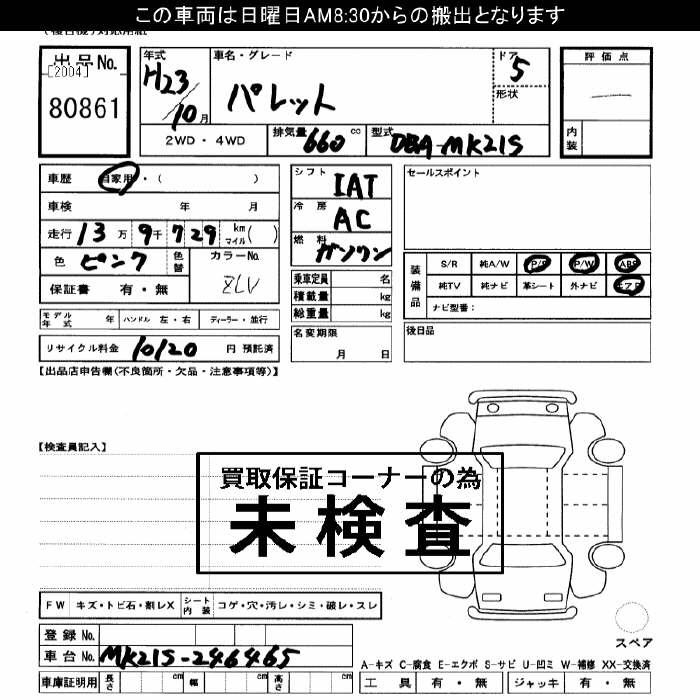 この車両は日曜日AM8:30からの搬出となります
出品No.
[2004]
80861
年式
H23/10月
車名・グレード
パレット
ドア
5
形状
評価点
内装
2WD・4WD
排気量 660 cc
型式 DBA-MK21S
車歴 自家用・( )
車検 年 月
走行 13万9千729 km マイル( )
色 ピンク 色替
カラーNo.
ZLV
保証書 有・無
シフト IAT
冷房 AC
燃料 ガソリン
乗車定員 名
積載量 kg
総重量 kg
セールスポイント
装備品
S/R 純A/W P/S P/W ABS
純TV 純ナビ 革シート 外ナビ エアB
ナビ型番:
モデル年式 年 ハンドル 左・右 ディーラー・並行
名変期限
月 日
後日品
リサイクル料金 10120 円 預託済
【出品店申告欄(不良箇所・欠品・注意事項等)】
【検査員記入】
買取保証コーナーの為
未検査
FW キズ・トビ石・割レX シート内装 コゲ・穴・汚レ・シミ・破レ・スレ
スペア
登録No.
車台No. MK21S-246465
A-キズ C-腐食 E-エクボ S-サビ U-凹ミ W-補修 XX-交換済
車庫証明用 長さ cm 幅 cm 高さ cm
工具 有・無 ジャッキ 有・無